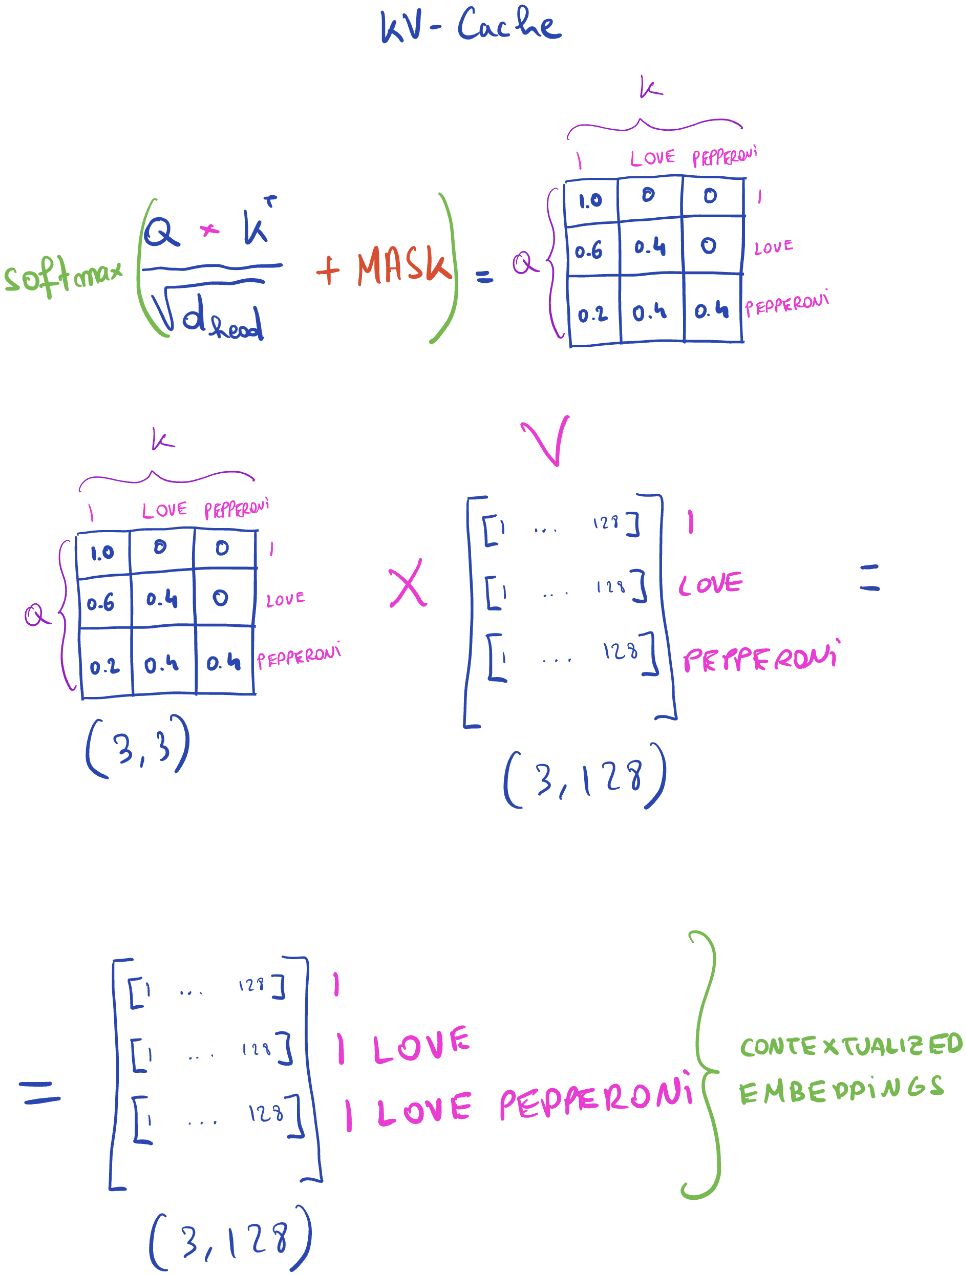 KV-Cache
K
I LOVE PEPPERONi
softmax ( Q × K^T / √d_head + MASK ) =
Q
1.0 0 0 I
0.6 0.4 0 LOVE
0.2 0.4 0.4 PEPPERONi
K
I LOVE PEPPERONi
Q
1.0 0 0 I
0.6 0.4 0 LOVE
0.2 0.4 0.4 PEPPERONi
(3,3)
X
V
[1 ... 128] I
[1 ... 128] LOVE
[1 ... 128] PEPPERONi
(3,128)
=
=
[1 ... 128] I
[1 ... 128] I LOVE
[1 ... 128] I LOVE PEPPERONi
(3,128)
CONTEXTUALIZED
EMBEDDiNGS